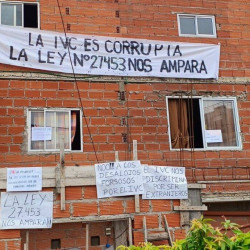 LA IVC ES CORRUPTA
LA LEY Nº27453 NOS AMPARA
NO!! A LOS
DESALOJOS
FORZOSOS
POR EL IVC
EL IVC NOS
DISCRIMINA
POR SER
EXTRANJERO
LA LEY
LA LEY
27453
NOS AMPARA